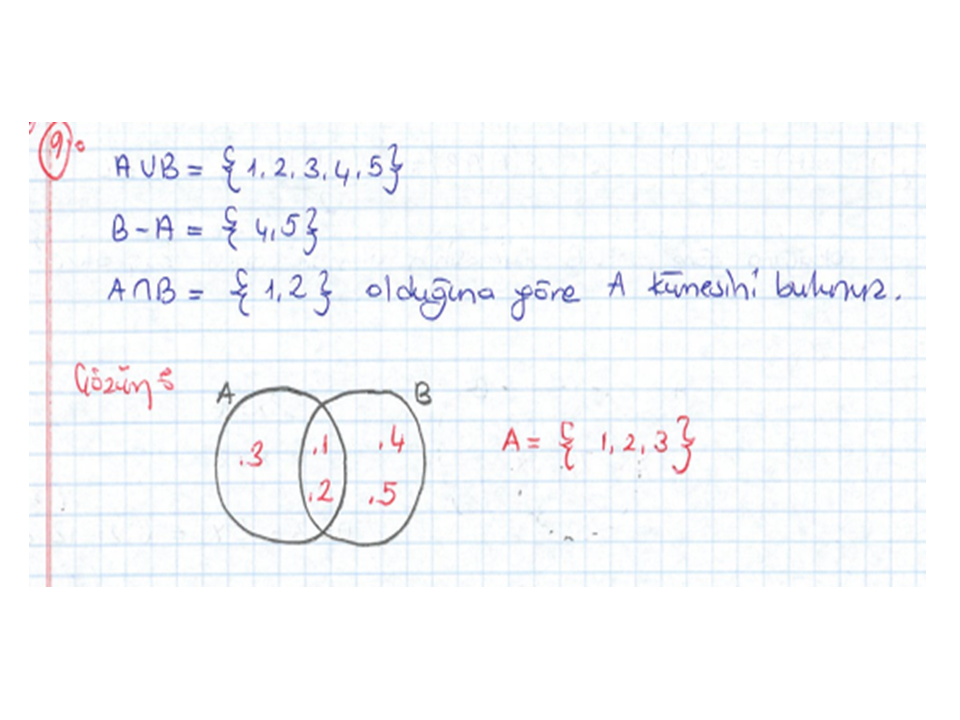 9)
A∪B = {1, 2, 3, 4, 5}
B-A = {4,5}
A∩B = {1,2} olduğuna göre A kümesini bulunuz.
Çözüm:
A B
.3 .1 .4
.2 .5
A = {1, 2, 3}